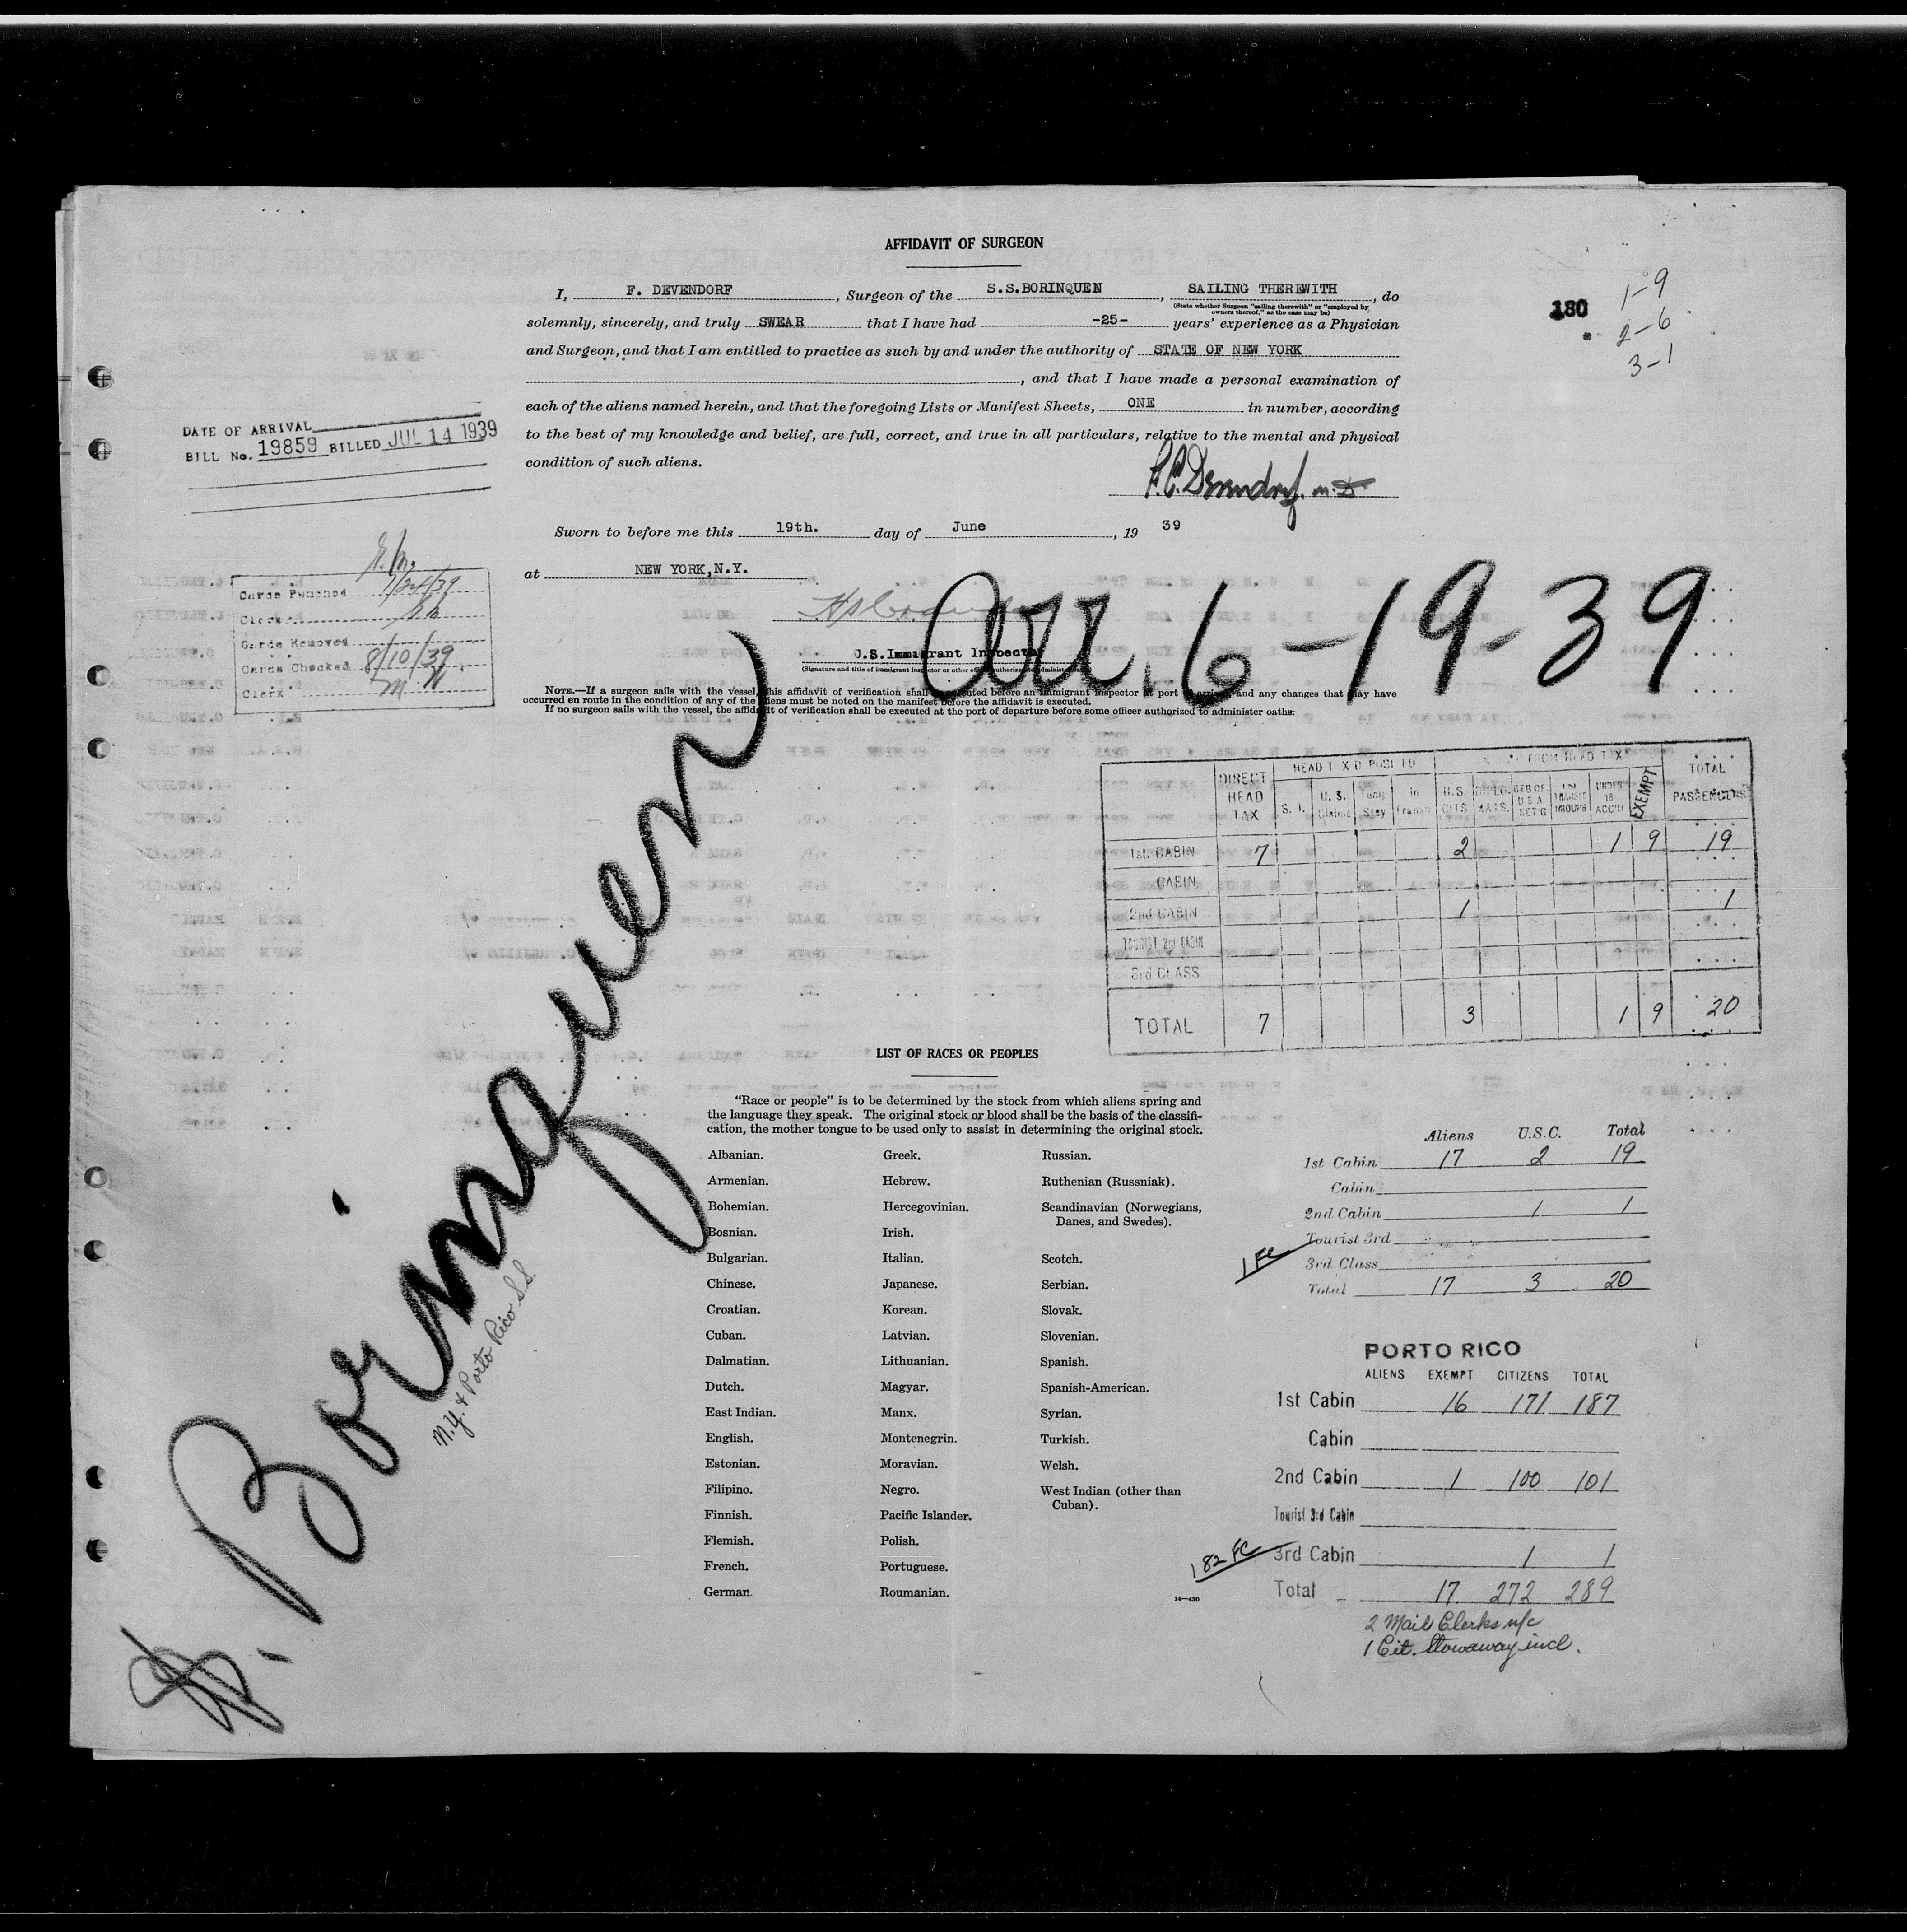 AFFIDAVIT OF SURGEON
I, F. DEVENDORF, Surgeon of the S.S.BORINQUEN, SAILING THEREWITH, do
(State whether Surgeon "sailing therewith" or "employed by owners thereof," as the case may be)
solemnly, sincerely, and truly SWEAR that I have had -25- years' experience as a Physician
and Surgeon, and that I am entitled to practice as such by and under the authority of STATE OF NEW YORK
, and that I have made a personal examination of
each of the aliens named herein, and that the foregoing Lists or Manifest Sheets, ONE in number, according
to the best of my knowledge and belief, are full, correct, and true in all particulars, relative to the mental and physical
condition of such aliens.
F.C. Devendorf, M.D.
Sworn to before me this 19th. day of June, 19 39
at NEW YORK,N.Y.
U.S.Immigrant Inspector
(Signature and title of immigrant inspector or other officer authorized to administer oaths)
NOTE.—If a surgeon sails with the vessel, this affidavit of verification shall be executed before an immigrant inspector at port of arrival and any changes that may have
occurred en route in the condition of any of the aliens must be noted on the manifest before the affidavit is executed.
If no surgeon sails with the vessel, the affidavit of verification shall be executed at the port of departure before some officer authorized to administer oaths.
180
1-9
2-6
3-1
DATE OF ARRIVAL
BILL No. 19859 BILLED JUL 14 1939
Cards Punched 7/24/39
Clerk
Cards Removed
Cards Checked 8/10/39
Clerk
Arr. 6-19-39
S. Borinquen
N.Y. & Porto Rico S.S.
DIRECT HEAD TAX
HEAD TAX DEPOSITED
S. I.
U. S. Claims
Temp Stay
In Transit
EXEMPT FROM HEAD TAX
U.S. CITS.
DIPLOMATS.
UNDER 16 ACC'D
EXEMPT
TOTAL PASSENGERS
1st. CABIN 7 2 1 9 19
CABIN
2nd CABIN 1 1
TOURIST 3rd CABIN
3rd CLASS
TOTAL 7 3 1 9 20
LIST OF RACES OR PEOPLES
"Race or people" is to be determined by the stock from which aliens spring and
the language they speak. The original stock or blood shall be the basis of the classifi-
cation, the mother tongue to be used only to assist in determining the original stock.
Albanian.
Armenian.
Bohemian.
Bosnian.
Bulgarian.
Chinese.
Croatian.
Cuban.
Dalmatian.
Dutch.
East Indian.
English.
Estonian.
Filipino.
Finnish.
Flemish.
French.
German.
Greek.
Hebrew.
Hercegovinian.
Irish.
Italian.
Japanese.
Korean.
Latvian.
Lithuanian.
Magyar.
Manx.
Montenegrin.
Moravian.
Negro.
Pacific Islander.
Polish.
Portuguese.
Roumanian.
Russian.
Ruthenian (Russniak).
Scandinavian (Norwegians,
Danes, and Swedes).
Scotch.
Serbian.
Slovak.
Slovenian.
Spanish.
Spanish-American.
Syrian.
Turkish.
Welsh.
West Indian (other than
Cuban).
14—430
Aliens U.S.C. Total
1st Cabin 17 2 19
Cabin
2nd Cabin 1 1
Tourist 3rd
1 FC
3rd Class
Total 17 3 20
PORTO RICO
ALIENS EXEMPT CITIZENS TOTAL
1st Cabin 16 171 187
Cabin
2nd Cabin 1 100 101
Tourist 3rd Cabin
182 FC
3rd Cabin 1 1
Total 17 272 289
2 Mail Clerks n/c
1 Cit. Stowaway incl.